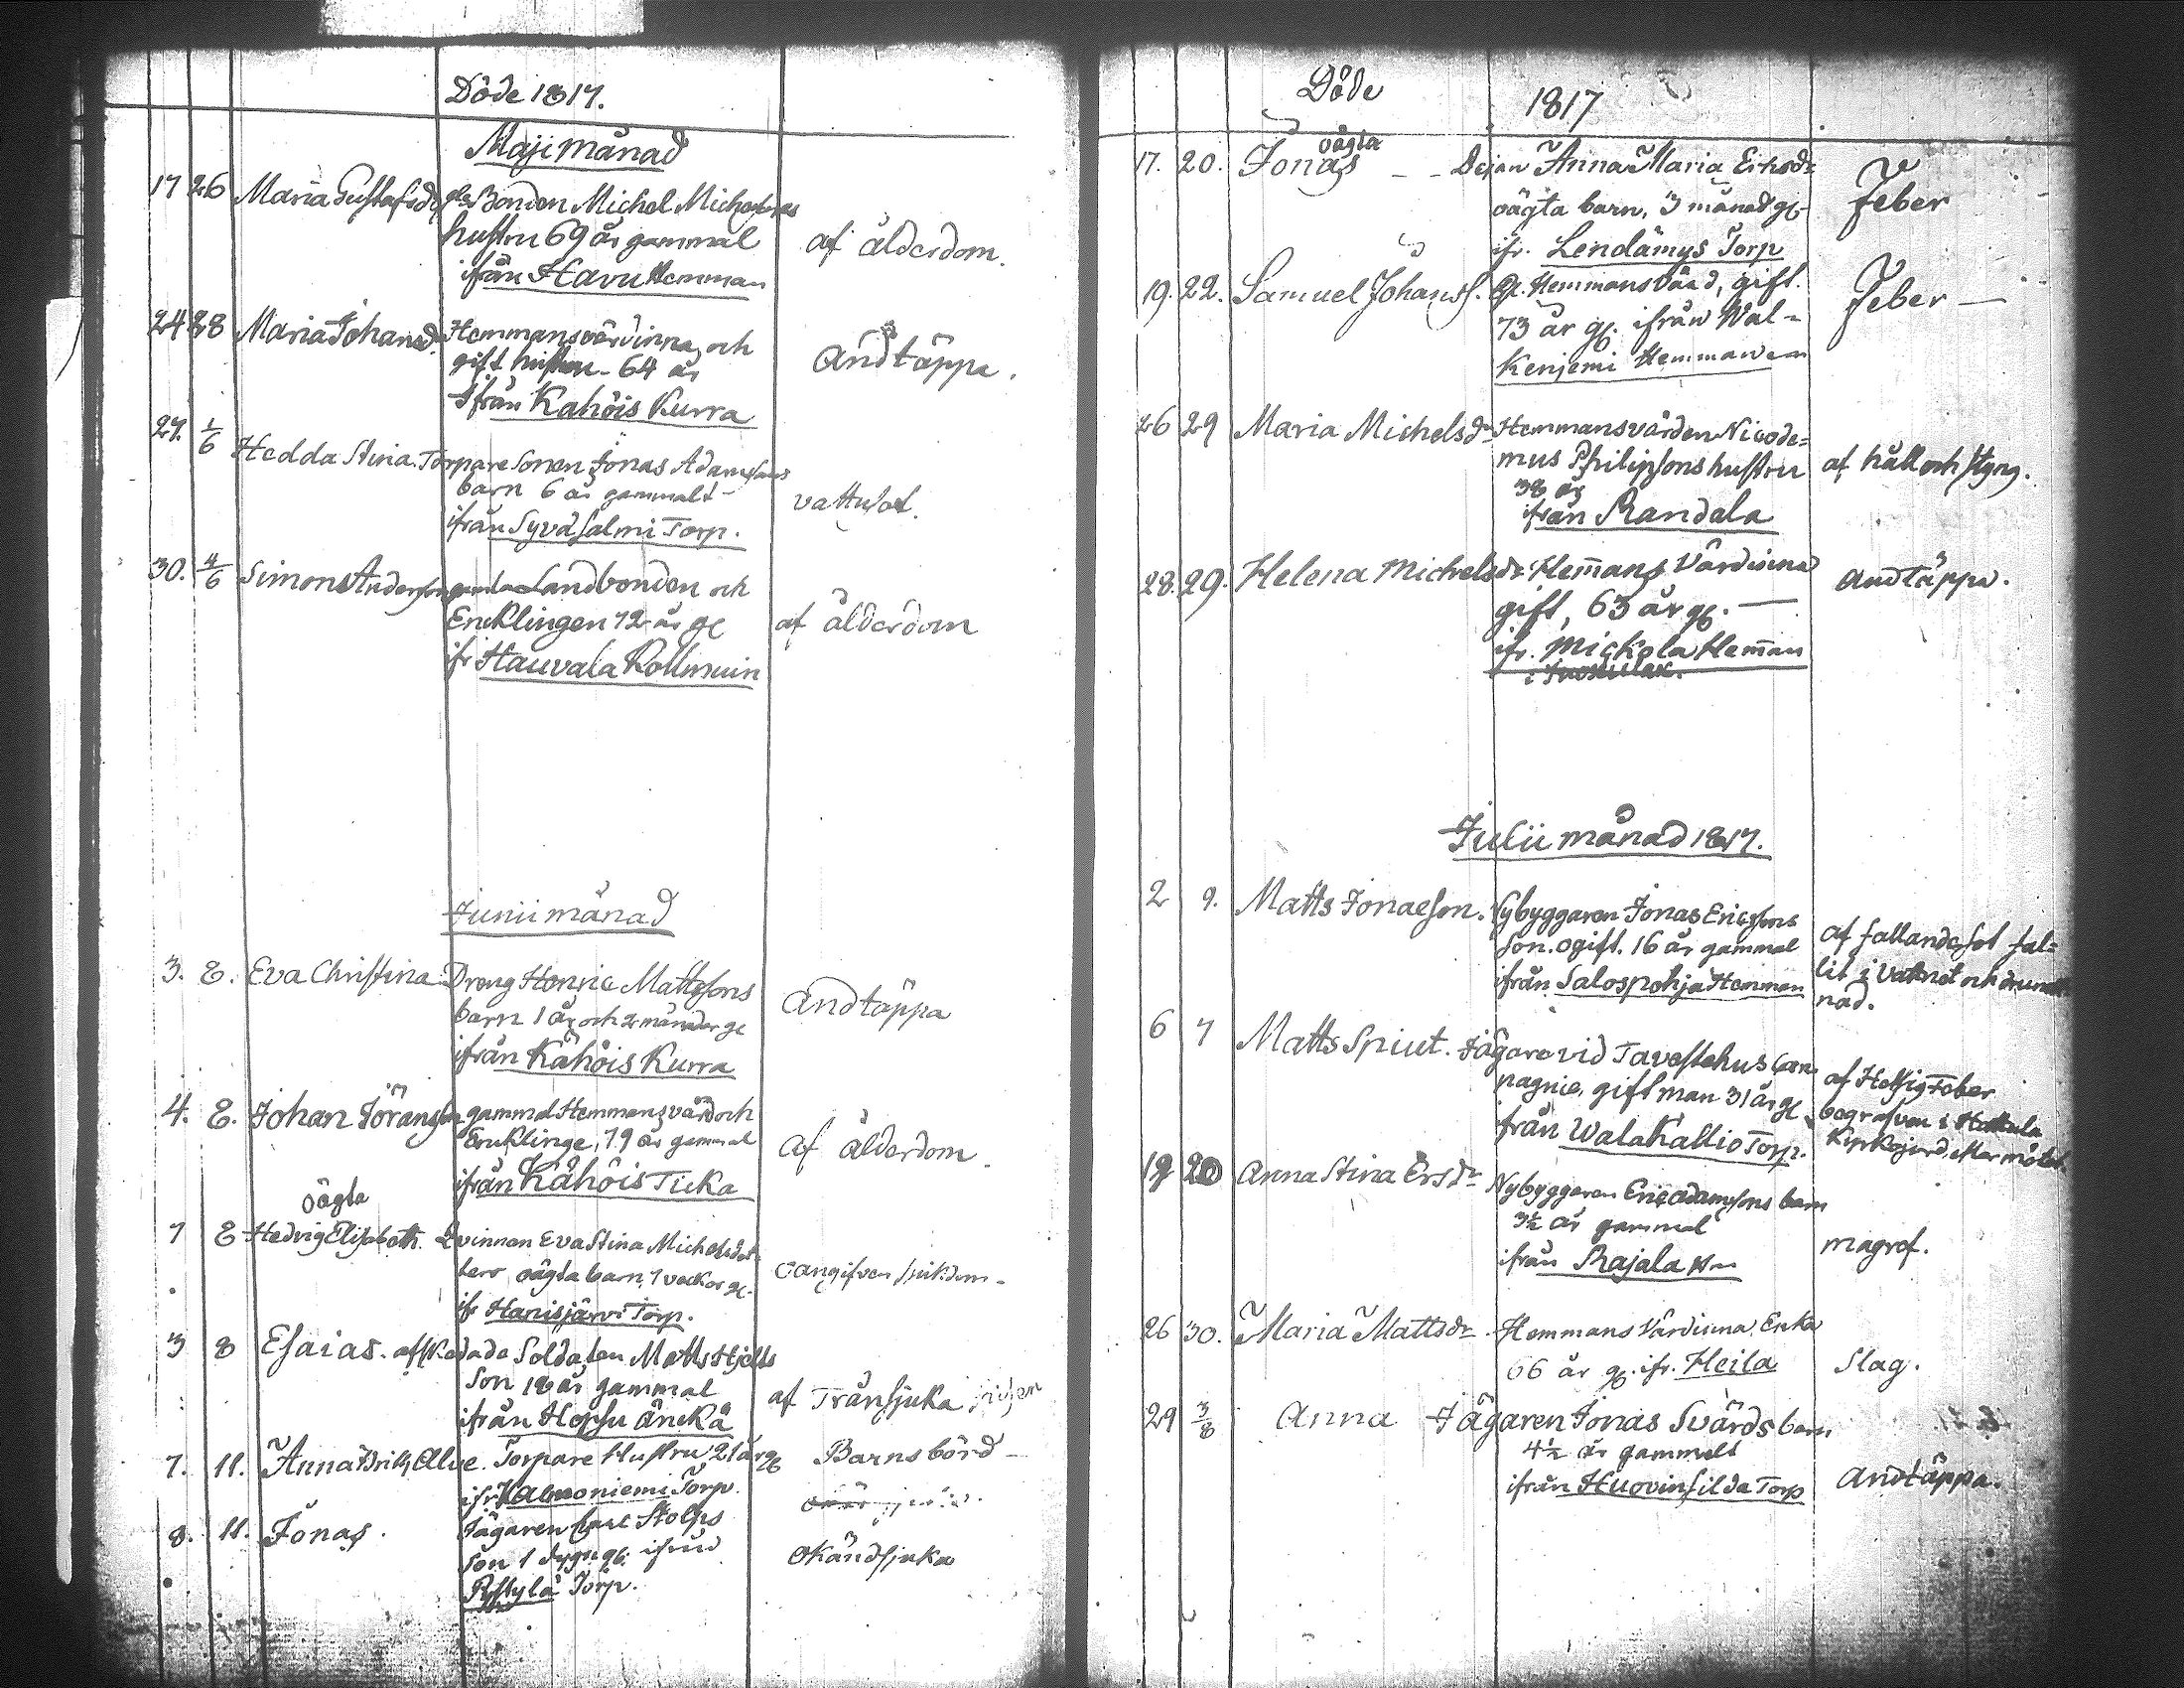 Döde 1817.
Maji månad
17 26 Maria Gustafsdr gla Bonden Michel Michelsons
hustru 69 år gammal
ifrån Havu Hemman
af ålderdom.
24 28 Maria Johansdr Hemmansvärdinna och
gift hustru - 64 år
ifrån Kahöis Kurra
Andtäppa.
27. 1/6 Hedda Stina. Torpare Sonen Jonas Adamssons
barn 6 år gammalt -
ifrån Syvdsalmi Torp.
vattusot.
30. 4/6 Simon Andersson gamla Landbonden och
Encklingen 72 år gl
ifr Hauvala Kollmuin
af ålderdom
Junii månad
3. 8. Eva Christina. Dreng Henric Mattssons
barn 1 år och 2 månader gl
ifrån Kähöis Kurra
Andtäppa
4. 8. Johan Jöransson gammal Hemmansvärd och
Encklinge, 79 år gammal
ifrån Kähöis Ticka
af ålderdom.
oägta
7 8 Hedvig Elisabeth. Qvinnan Eva Stina Michelsdot-
ters oägta barn, 7 veckor gl.
ifr Hanisjärvi Torp.
oangifven sjukdom.
3 8 Esaias. afskedade Soldaten Matts Hjelts
Son 18 år gammal
ifrån Hopsu Änckä
af Trånsjuka
7. 11. Anna Brita Olve. Torpare Hustru 21 år gl
ifr Kalmoniemi Torp.
Barnsbörd -
8. 11. Jonas. Jägaren Carl Stolps
Son 1 dygn gl. ifrån
Torp.
Okänd sjuka
Döde 1817
oägta
17. 20. Jonas - - Dejan Anna Maria Ericsdr
oägta barn, 3 månad gl-
ifr. Lendämys Torp
Feber
19. 22. Samuel Johanss. Gl. Hemmans Värd, gift.
73 år gl. ifrån Wal-
kenjemi Hemman
Feber -
26 29 Maria Michelsdr Hemmansvärden Nicode=
mus Philipsons hustru
38 år
ifrån Randala
af håll och styng.
28. 29. Helena Michelsdr Hemans Värdinna
gift, 63 år gl. -
ifr. Mickola Heman
Andtäppa.
Julii månad 1817.
2 9. Matts Jonaeson. Nybyggaren Jonas Ericssons
Son. ogift. 16 år gammal
ifrån Salospohja Hemman
af fallandesot fal=
lit i Vattnet och drunck
nad.
6 7 Matts Spiut. Jägare vid Tavastehus Com
pagnie, gift man 31 år gl
från Walakallio Torp.
af Hetsig Feber
begrafven i Hattula
Kyrkojord efter mötet.
19 20 Anna Stina Ersdr Nybyggaren Eric Adamssons barn
3½ år gammal
ifrån Rajala
magref.
26 30. Maria Mattsdr. Hemmans Värdinna Enka
66 år gl. ifr. Heila
Slag.
29 3/8 Anna Jägaren Jonas Svärds barn
4½ år gammalt
ifrån Huovinsilda Torp
Andtäppa.